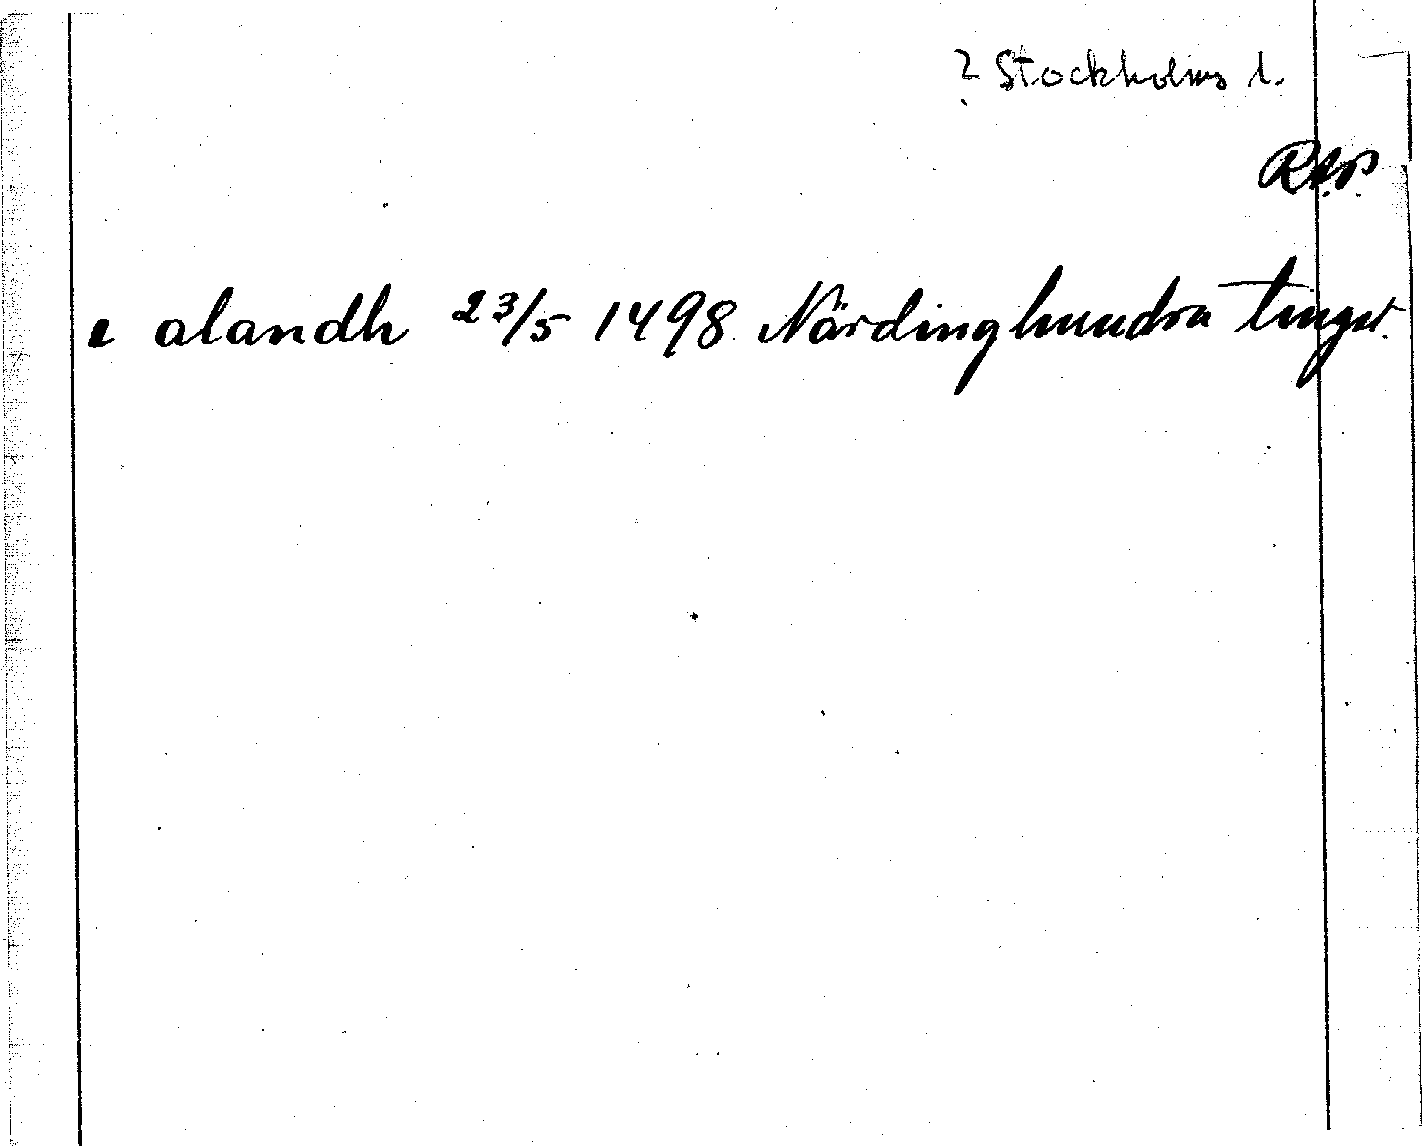 ? Stockholms l.
RAp.
i alandh 23/5 1498 Närdinghundra tingst.